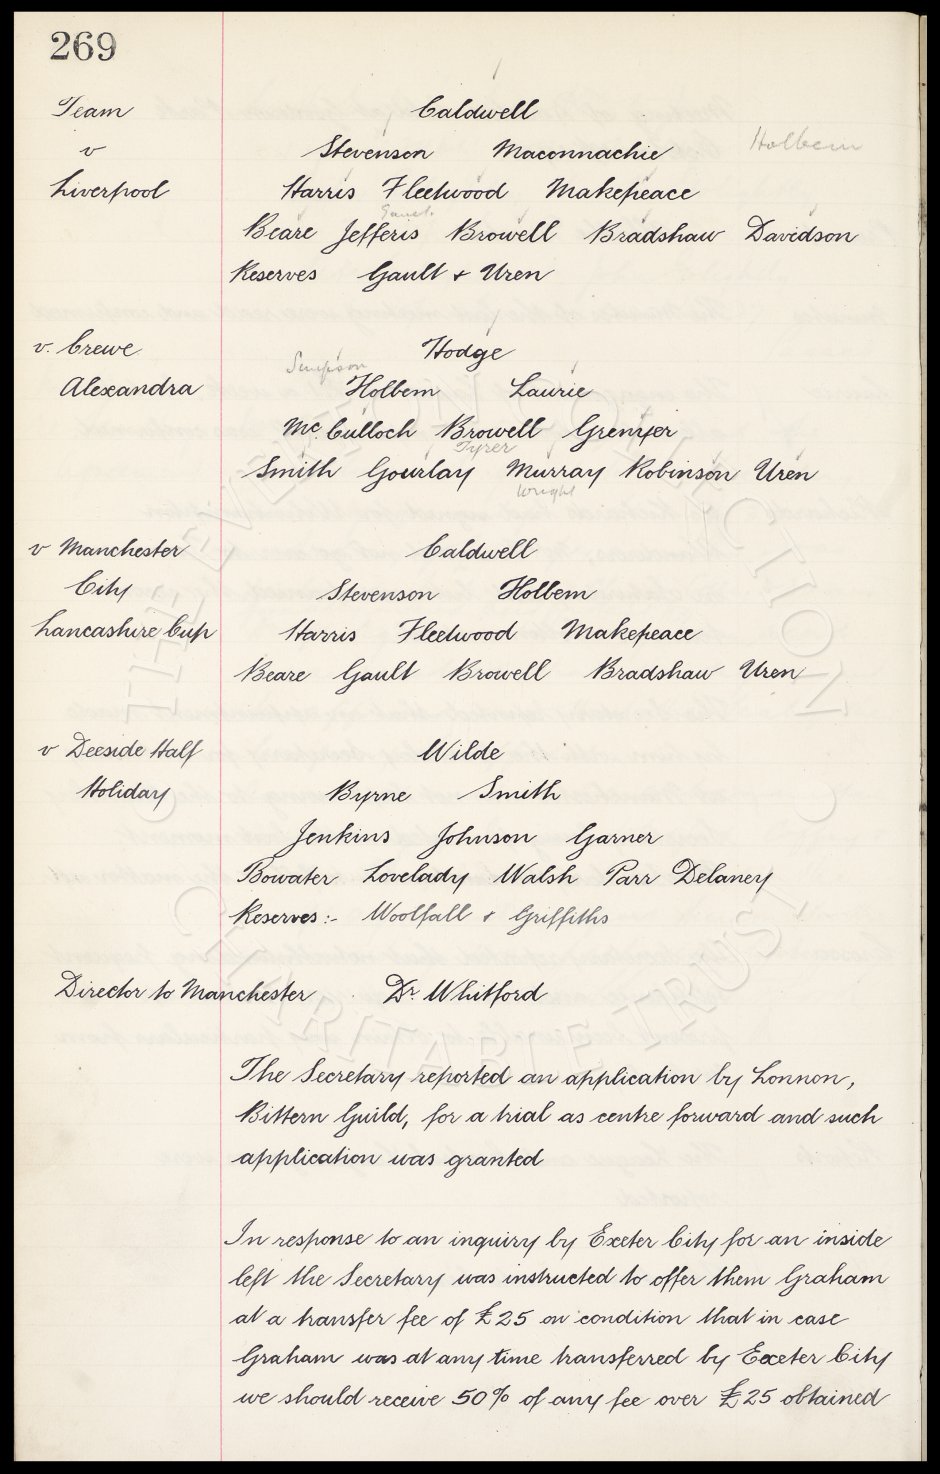 269
Team Caldwell
v Stevenson Maconnachie Holbem
Liverpool Harris Fleetwood Makepeace
Gault
Beare Jefferis Browell Bradshaw Davidson
Reserves Gault & Uren
v. Crewe Hodge
Simpson
Alexandra Holbem Laurie
Mc.Culloch Browell Grenyer
Tyrer
Smith Gourlay Murray Robinson Uren
Wright
v Manchester Caldwell
City Stevenson Holbem
Lancashire Cup Harris Fleetwood Makepeace
Beare Gault Browell Bradshaw Uren
v Deeside Half Wilde
Holiday Byrne Smith
Jenkins Johnson Garner
Bowater Lovelady Walsh Parr Delaney
Reserves:- Woolfall & Griffiths
Director to Manchester Dr. Whitford
The Secretary reported an application by Lonnon,
Bittern Guild, for a trial as centre forward and such
application was granted
In response to an inquiry by Exeter City for an inside
left the Secretary was instructed to offer them Graham
at a transfer fee of £25 on condition that in case
Graham was at any time transferred by Exeter City
we should receive 50% of any fee over £25 obtained
THE EVERTON COLLECTION
CHARITABLE TRUST